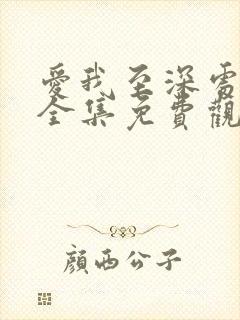 愛我至深電
全集免費觀
顏西公子